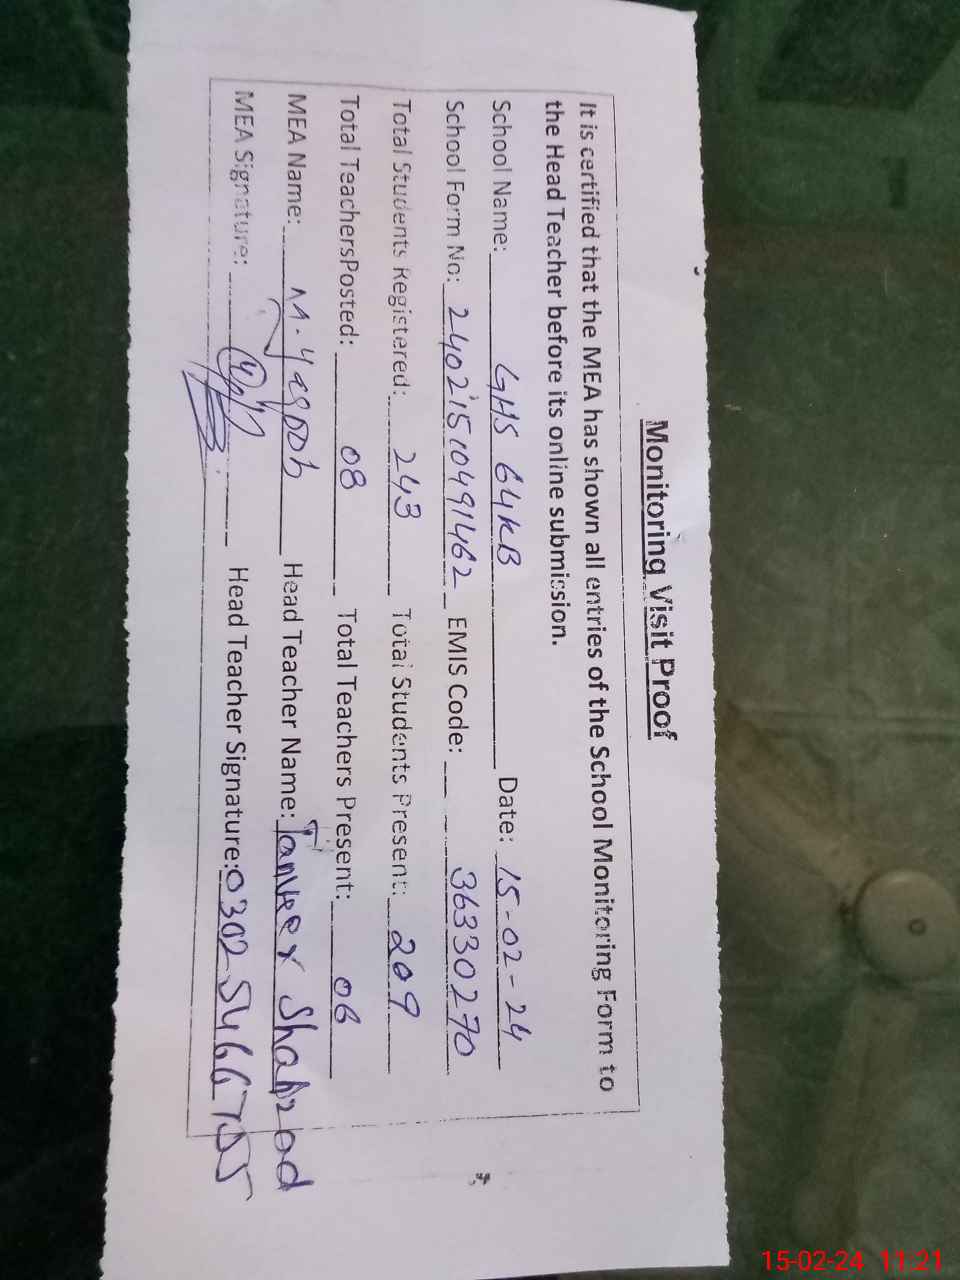 Monitoring Visit Proof
It is certified that the MEA has shown all entries of the School Monitoring Form to
the Head Teacher before its online submission.
School Name: GHS 64KB Date: 15-02-24
School Form No: 24021510491462 EMIS Code: 36330270
Total Students Registered: 243 Total Students Present: 209
Total TeachersPosted: 08 Total Teachers Present: 06
MEA Name: M. Yaqoob Head Teacher Name: Tanveer Shahzad
MEA Signature: Head Teacher Signature: 0302 5466705
15-02-24 11:21